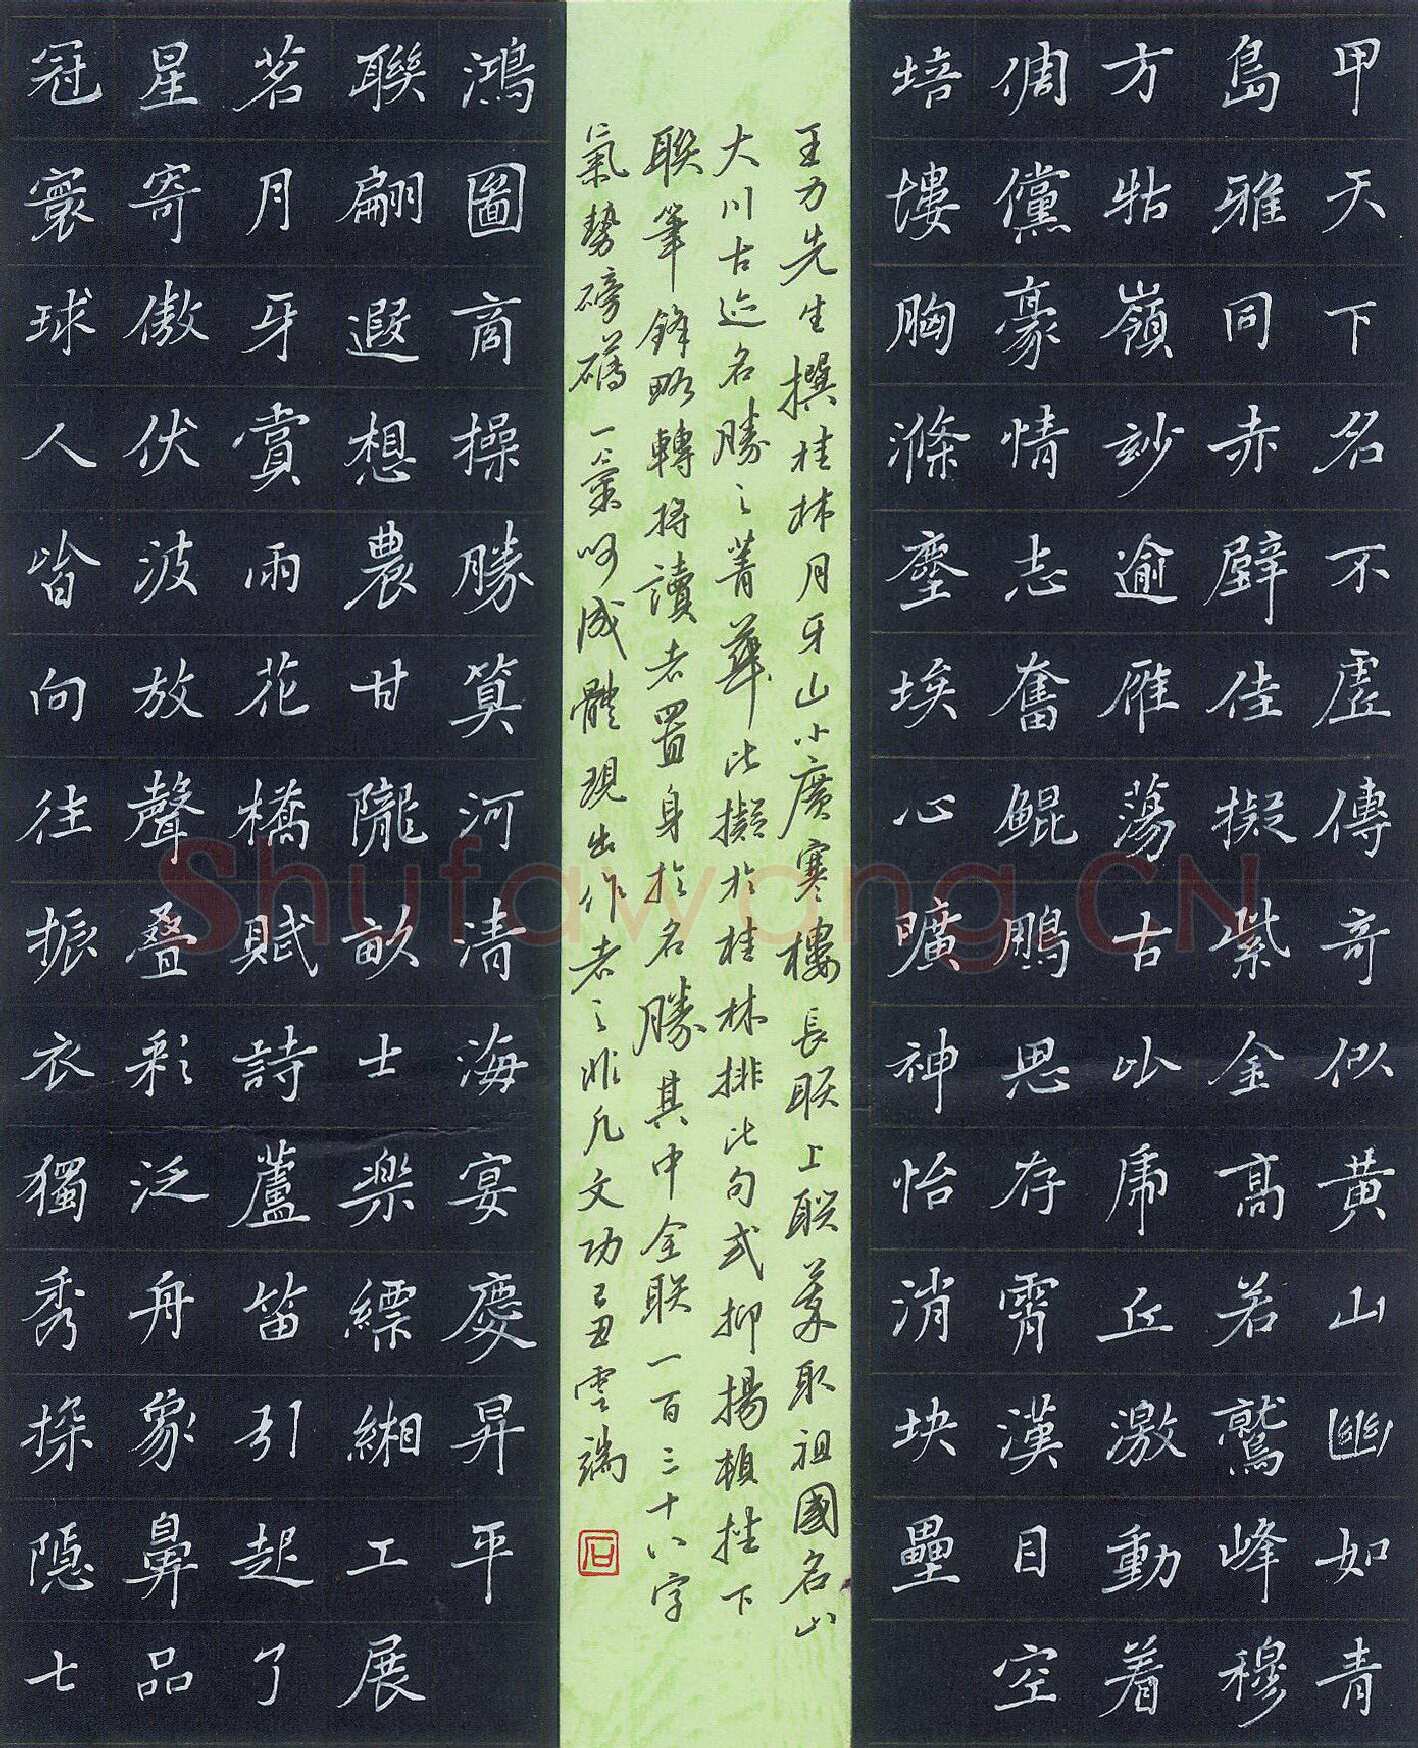 甲天下名不虛傳奇似黃山幽如青
島雅同赤壁佳擬紫金高若鷲峰穆
方牯嶺妙逾雁蕩古比虎丘激動着
倜儻豪情志奮鯤鵬思存霄漢目空
培塿胸滌塵埃心曠神怡消块壘
冠寰球人皆向往振衣獨秀探隱七
星寄傲伏波放聲叠彩泛舟象鼻品
茗月牙賞雨花橋賦詩蘆笛引起了
聯翩遐想農甘隴畝士樂縹緗工展
鴻圖商操勝算河清海宴慶昇平
王力先生撰桂林月牙山小廣寒樓長联上联萃取祖國名山
大川古迹名勝之菁華比擬於桂林排比句式抑揚頓挫下
联筆鋒略轉将讀者置身於名勝其中全联一百三十八字
氣勢磅礴一氣呵成體現出作者之非凡文功己丑雲端
石
Shufawang.CN